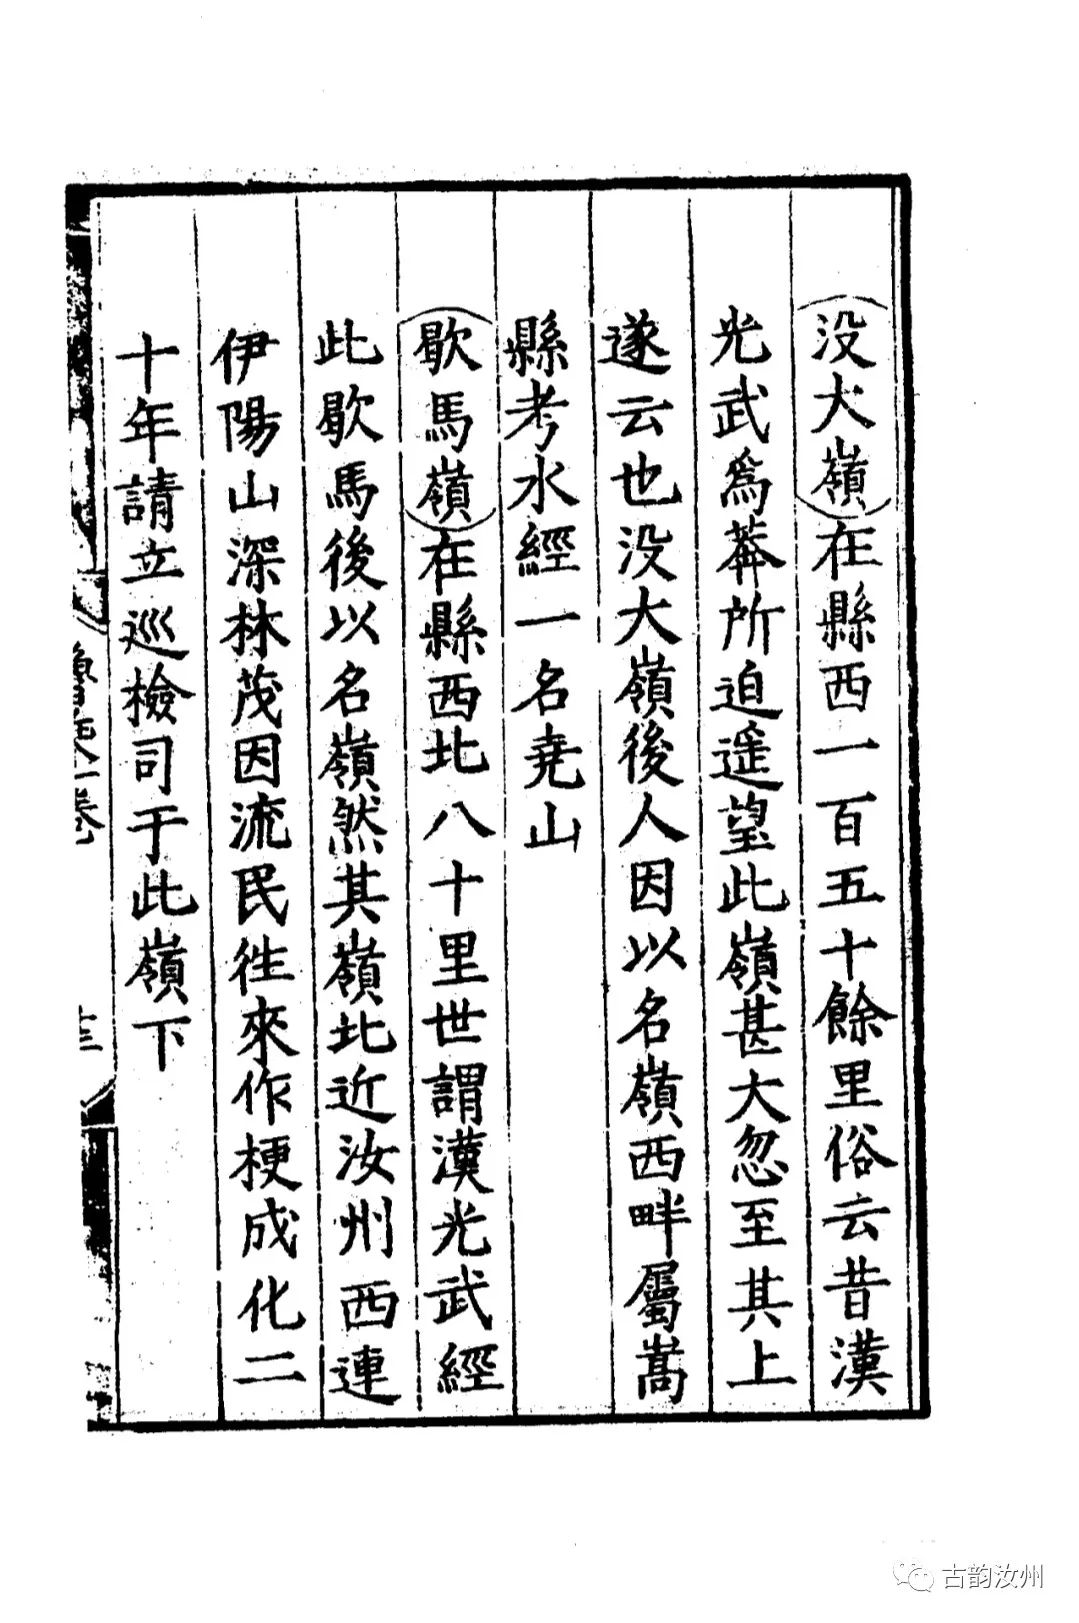 没大嶺在縣西一百五十餘里俗云昔漢
光武爲莽所迫遥望此嶺甚大忽至其上
遂云也没大嶺後人因以名嶺西畔屬嵩
縣考水經一名堯山
歇馬嶺在縣西北八十里世謂漢光武經
此歇馬後以名嶺然其嶺北近汝州西連
伊陽山深林茂因流民徃來作梗成化二
十年請立巡檢司于此嶺下
十三
古韵汝州